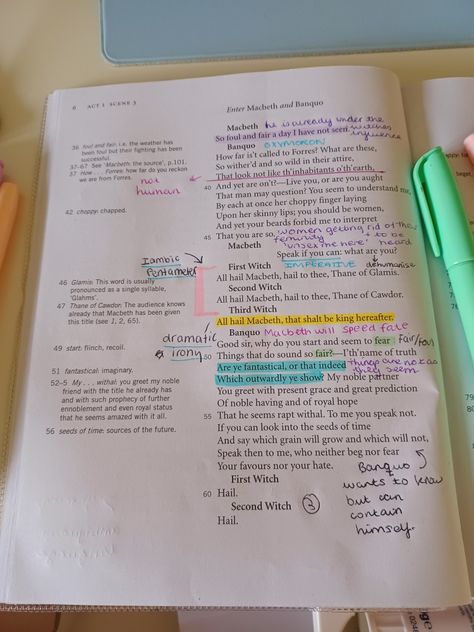 6 ACT 1 SCENE 3
Enter Macbeth and Banquo
Macbeth he is already under the
So foul and fair a day I have not seen. witches
influence
Banquo OXYMORON
How far is't called to Forres? What are these,
So wither'd and so wild in their attire,
That look not like th'inhabitants o'th'earth,
40 And yet are on't?—Live you, or are you aught
That man may question? You seem to understand me,
By each at once her choppy finger laying
Upon her skinny lips; you should be women,
And yet your beards forbid me to interpret
45 That you are so. women getting rid of their
feminity to be
Macbeth 'unsex me here' heard
Speak if you can: what are you?
First Witch IMPERATIVE dehumanise
All hail Macbeth, hail to thee, Thane of Glamis.
Second Witch
All hail Macbeth, hail to thee, Thane of Cawdor.
Third Witch
All hail Macbeth, that shalt be king hereafter.
Banquo Macbeth will speed fate
Good sir, why do you start and seem to fear fair/foul
50 Things that do sound so fair?—I'th'name of truth
Are ye fantastical, or that indeed things are not as
they seem
Which outwardly ye show? My noble partner
You greet with present grace and great prediction
Of noble having and of royal hope
55 That he seems rapt withal. To me you speak not.
If you can look into the seeds of time
And say which grain will grow and which will not,
Speak then to me, who neither beg nor fear
Your favours nor your hate.
First Witch
60 Hail.
Second Witch 3
Hail.
Banquo
wants to know
but can
contain
himself.
36 foul and fair, i.e. the weather has
been foul but their fighting has been
successful.
37–67 See 'Macbeth: the source', p.101.
37 How . . . Forres: how far do you reckon
we are from Forres.
not
human
42 choppy: chapped.
Iambic
Pentameter
46 Glamis: This word is usually
pronounced as a single syllable,
'Glahms'.
47 Thane of Cawdor: The audience knows
already that Macbeth has been given
this title (see 1, 2, 65).
dramatic
irony
49 start: flinch, recoil.
51 fantastical: imaginary.
52–5 My . . . withal: you greet my noble
friend with the title he already has
and with such prophecy of further
ennoblement and even royal status
that he seems amazed with it all.
56 seeds of time: sources of the future.